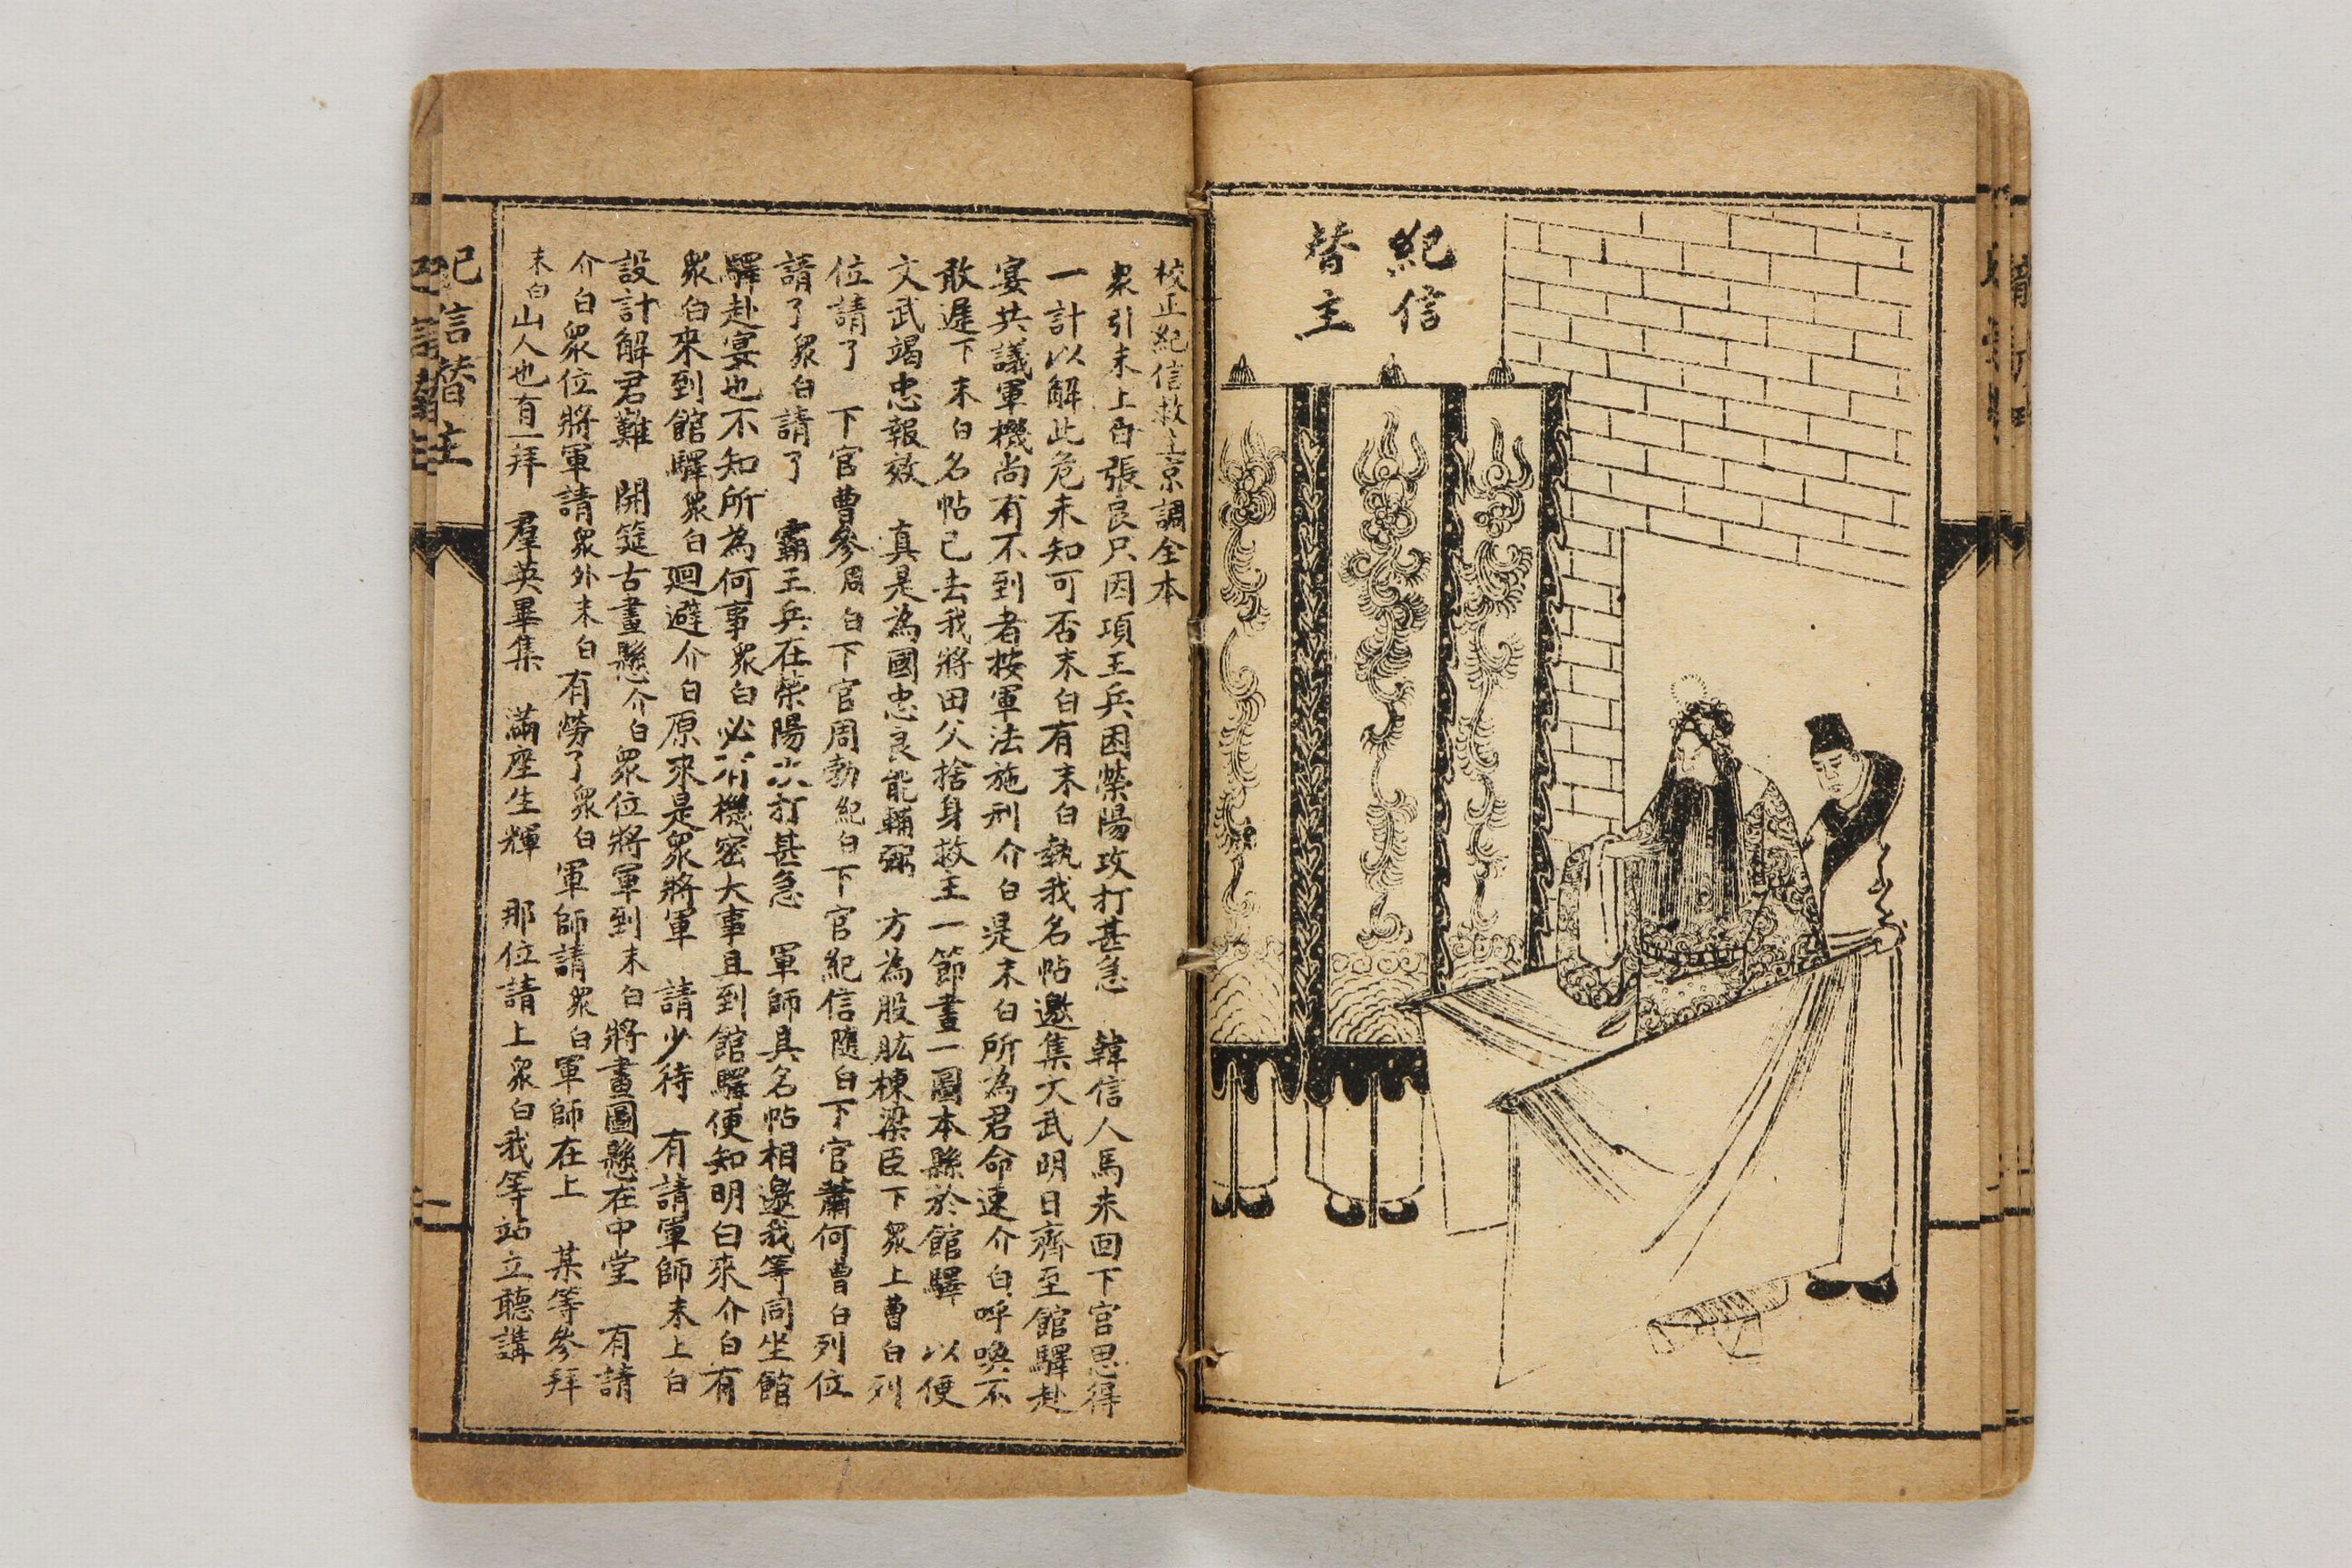 紀信
替主
校正紀信救主京調全本
衆引末上白張良只因項王兵困滎陽攻打甚急 韓信人馬未回下官思得
一計以解此危未知可否末白有末白執我名帖邀集文武明日齊至館驛赴
宴共議軍機尚有不到者按軍法施刑介白是末白所為君命速介白呼喚不
敢遲下末白名帖已去我將田父捨身救主一節畫一圖本縣於館驛 以便
文武竭忠報效 真是為國忠良能輔弼 方為股肱棟梁臣下衆上曹白列
位請了 下官曹參周白下官周勃紀白下官紀信隨白下官蕭何曹白列位
請了衆白請了 霸王兵在滎陽攻打甚急 軍師具名帖相邀我等同坐館
驛赴宴也不知所為何事衆白必有機密大事且到館驛便知明白來介白有
衆白來到館驛衆白廻避介白原來是衆將軍 請少待 有請軍師末上白
設計解君難 開筵古畫懸介白衆位將軍到末白將畫圖懸在中堂 有請
介白衆位將軍請衆外末白有勞了衆白軍師請衆白軍師在上 某等參拜
末白山人也有一拜 羣英畢集 滿座生輝 那位請上衆白我等站立聽講
紀信替主